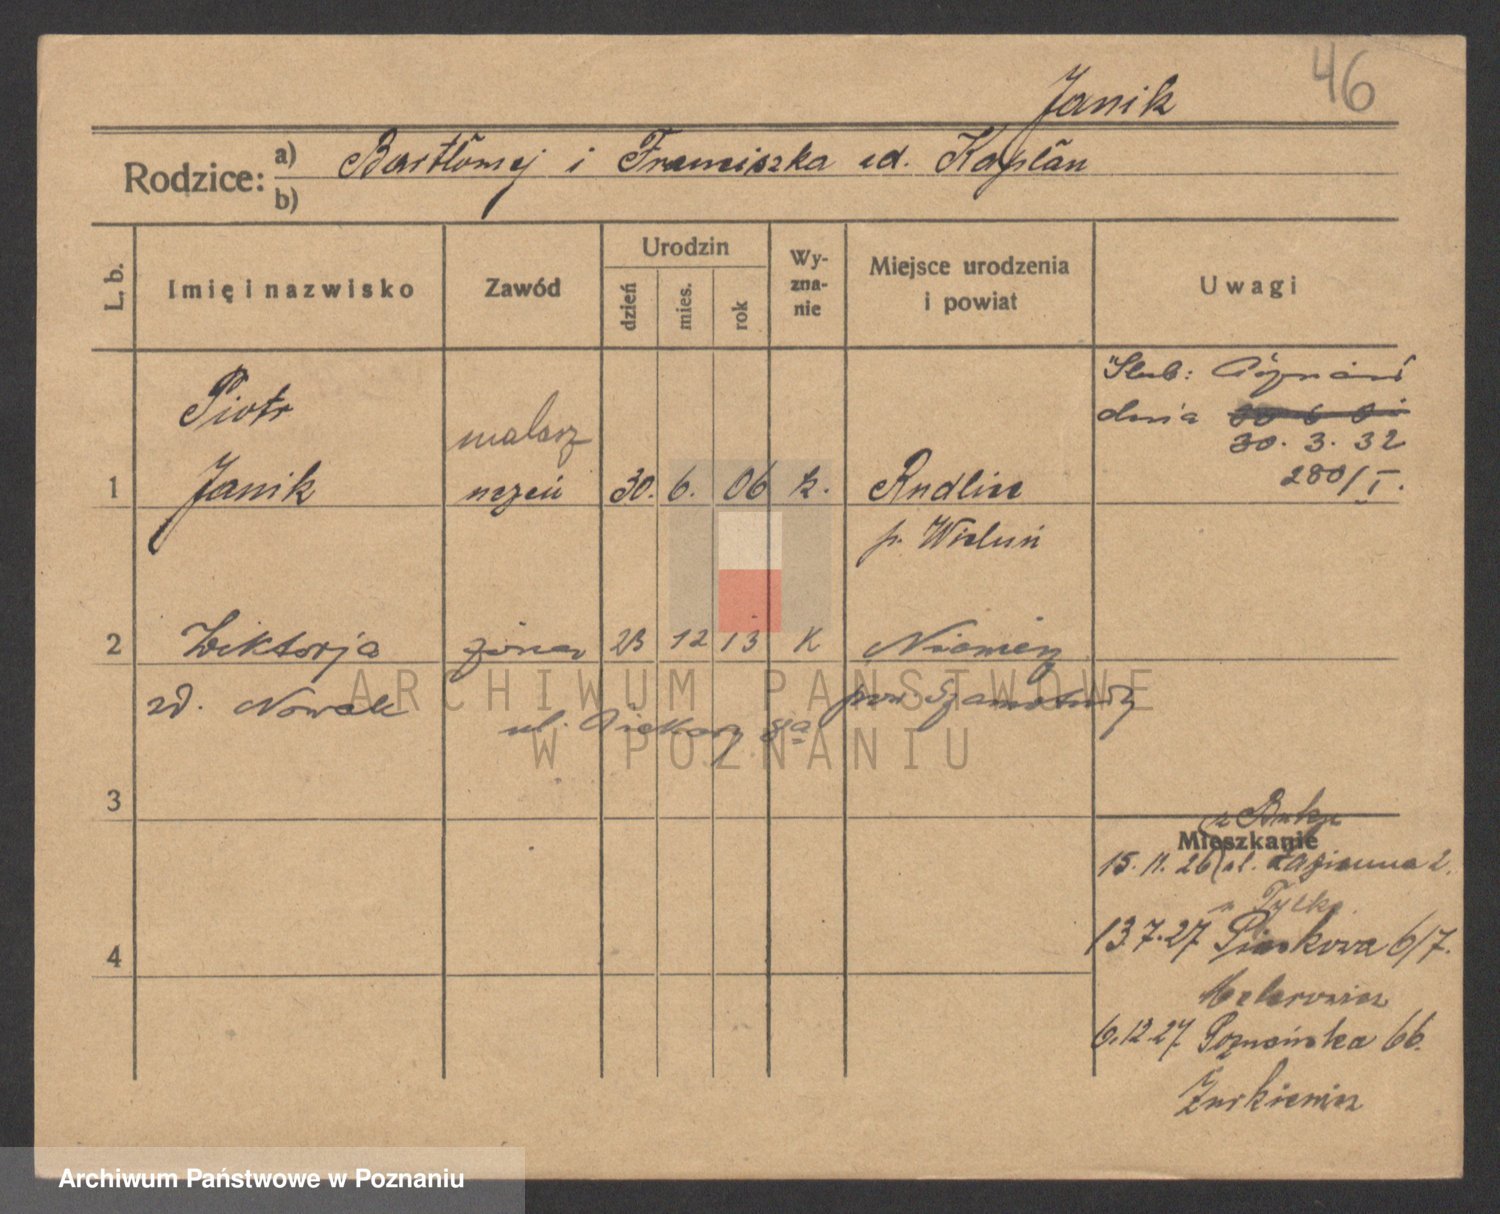 46
Janik
Rodzice: a) Bartłomej i Franciszka zd. Kaplan
b)
L. b. Imię i nazwisko Zawód Urodzin dzień mies. rok Wy-zna-nie Miejsce urodzenia i powiat Uwagi
Ślub: Poznań
dnia
30. 3. 32
280/I.
Piotr malarz
1 Janik uczeń 30. 6. 06 k. Rudlice
p. Wieluń
2 Wiktorja żona 23 12 13 K
zd. Nowak pow Szamotuły
ul. Piekary 8a
3
z Buku
Mieszkanie
15. 11. 26 ul. Łazienna 2.
u Tylko
13 7. 27 Piaskowa 6/7.
4
6.12.27 Poznańska 66.
Żurkiewicz
ARCHIWUM PAŃSTWOWE
W POZNANIU
Archiwum Państwowe w Poznaniu